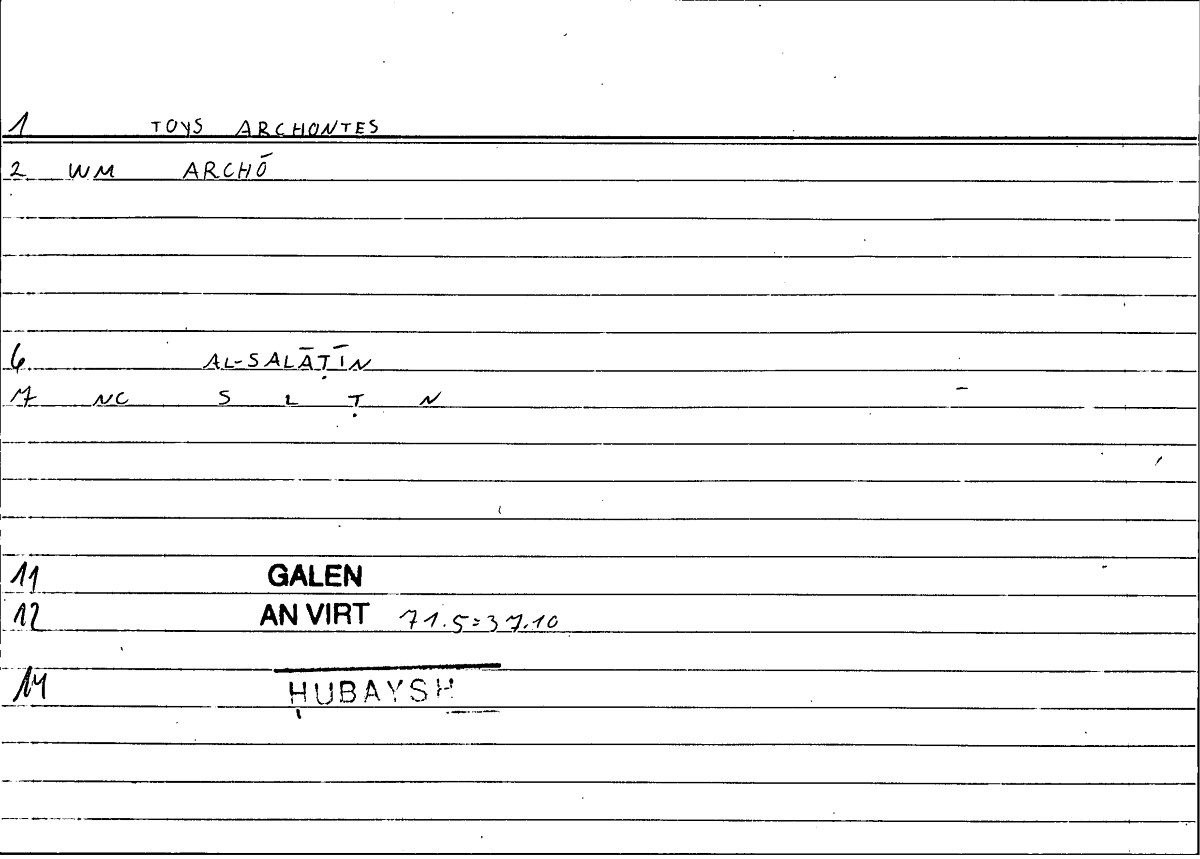 1 TOYS ARCHONTES
2 WM ARCHŌ
6 AL-SALĀṬĪN
7 NC S L Ṭ N
11 GALEN
12 AN VIRT 71.5=37.10
14 ḤUBAYSH